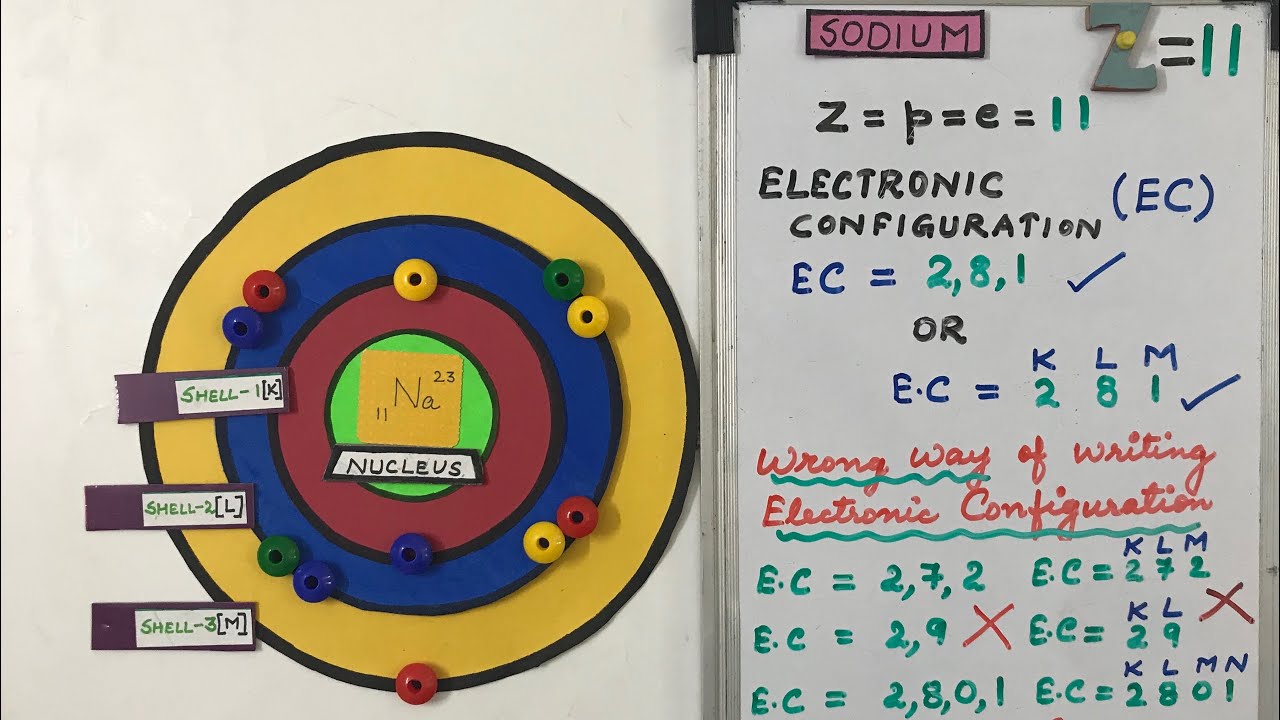 SHELL-1[K]
SHELL-2[L]
SHELL-3[M]
23
11 Na
NUCLEUS
SODIUM
Z = 11
Z = p = e = 11
ELECTRONIC
CONFIGURATION (EC)
EC = 2,8,1 ✓
OR
K L M
E.C = 2 8 1 ✓
Wrong way of writing
Electronic Configuration
E.C = 2,7,2
K L M
E.C = 2 7 2
E.C = 2,9 X
K L X
E.C = 2 9
E.C = 2,8,0,1
K L M N
E.C = 2 8 0 1